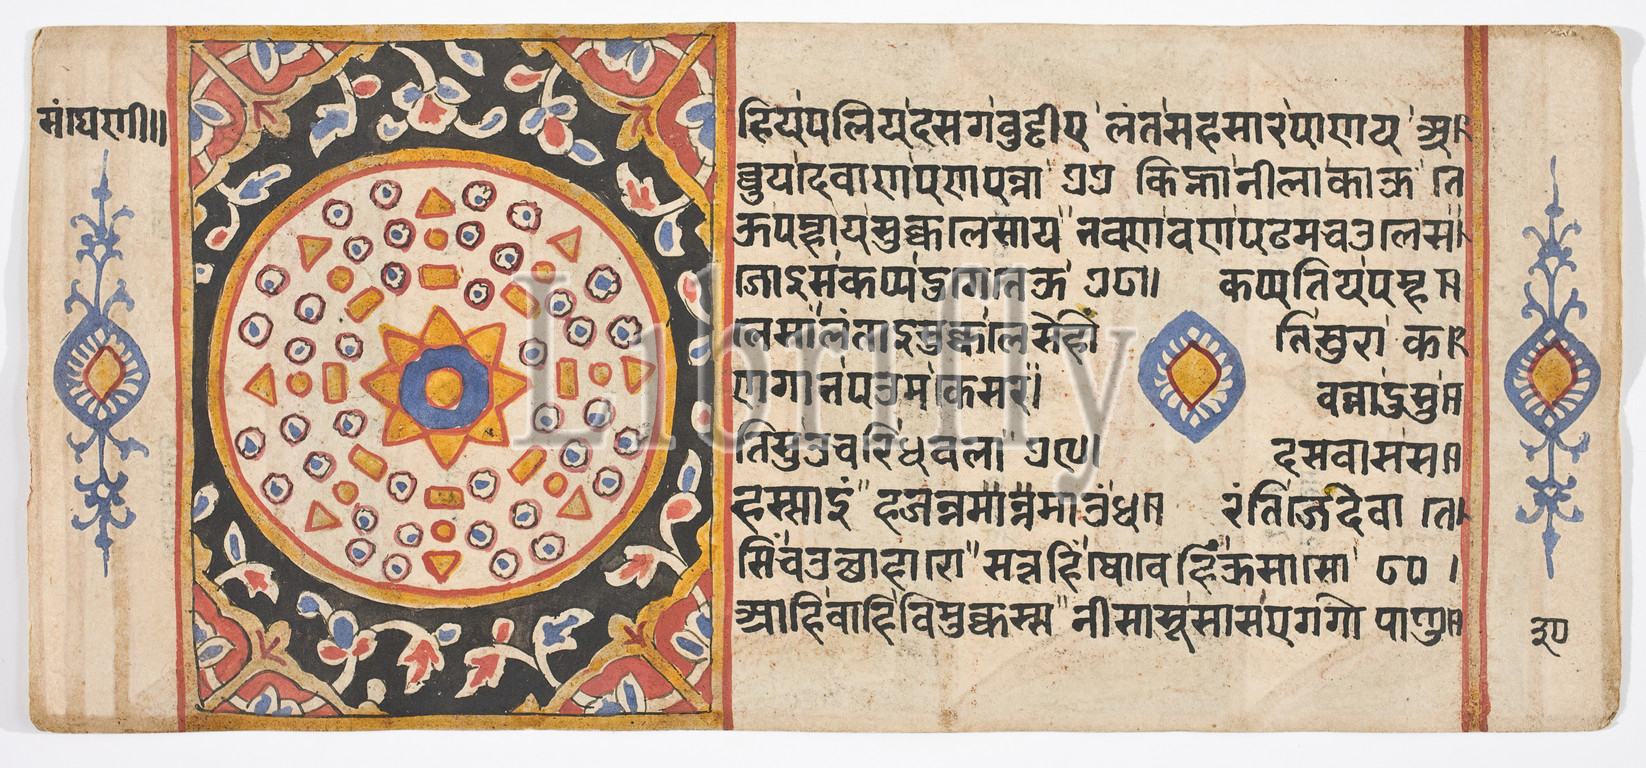 संघयणी॥
हियंपलियंदसगंवुट्टीए लंतसहसारपाणय अ
च्चुयदेवाणपणपन्ना ७७ किन्हानीलाकाऊ ते
ऊपम्हायसुक्कलेसाय नवणवणपढमचउलेस
जोइसकप्पदुगेतेऊ ७८। कप्पतियपम्ह॥
लेसालंताइसुक्कलेसहो तिसुरा क
णगानपउमकेसर वन्नादुसु॥
तिसुउवरिधवला ७९। दसवाससं॥
हस्साइं जहन्नमान्नमाउंध॥ रंतिजेदेवा ते
सिंचउत्थाहारो सत्तहिंथोवहिंऊसासो ८० ।
आहिवाहिविमुक्कस्स नीसासूसासएगगो पाणु॥
३९
Librifly